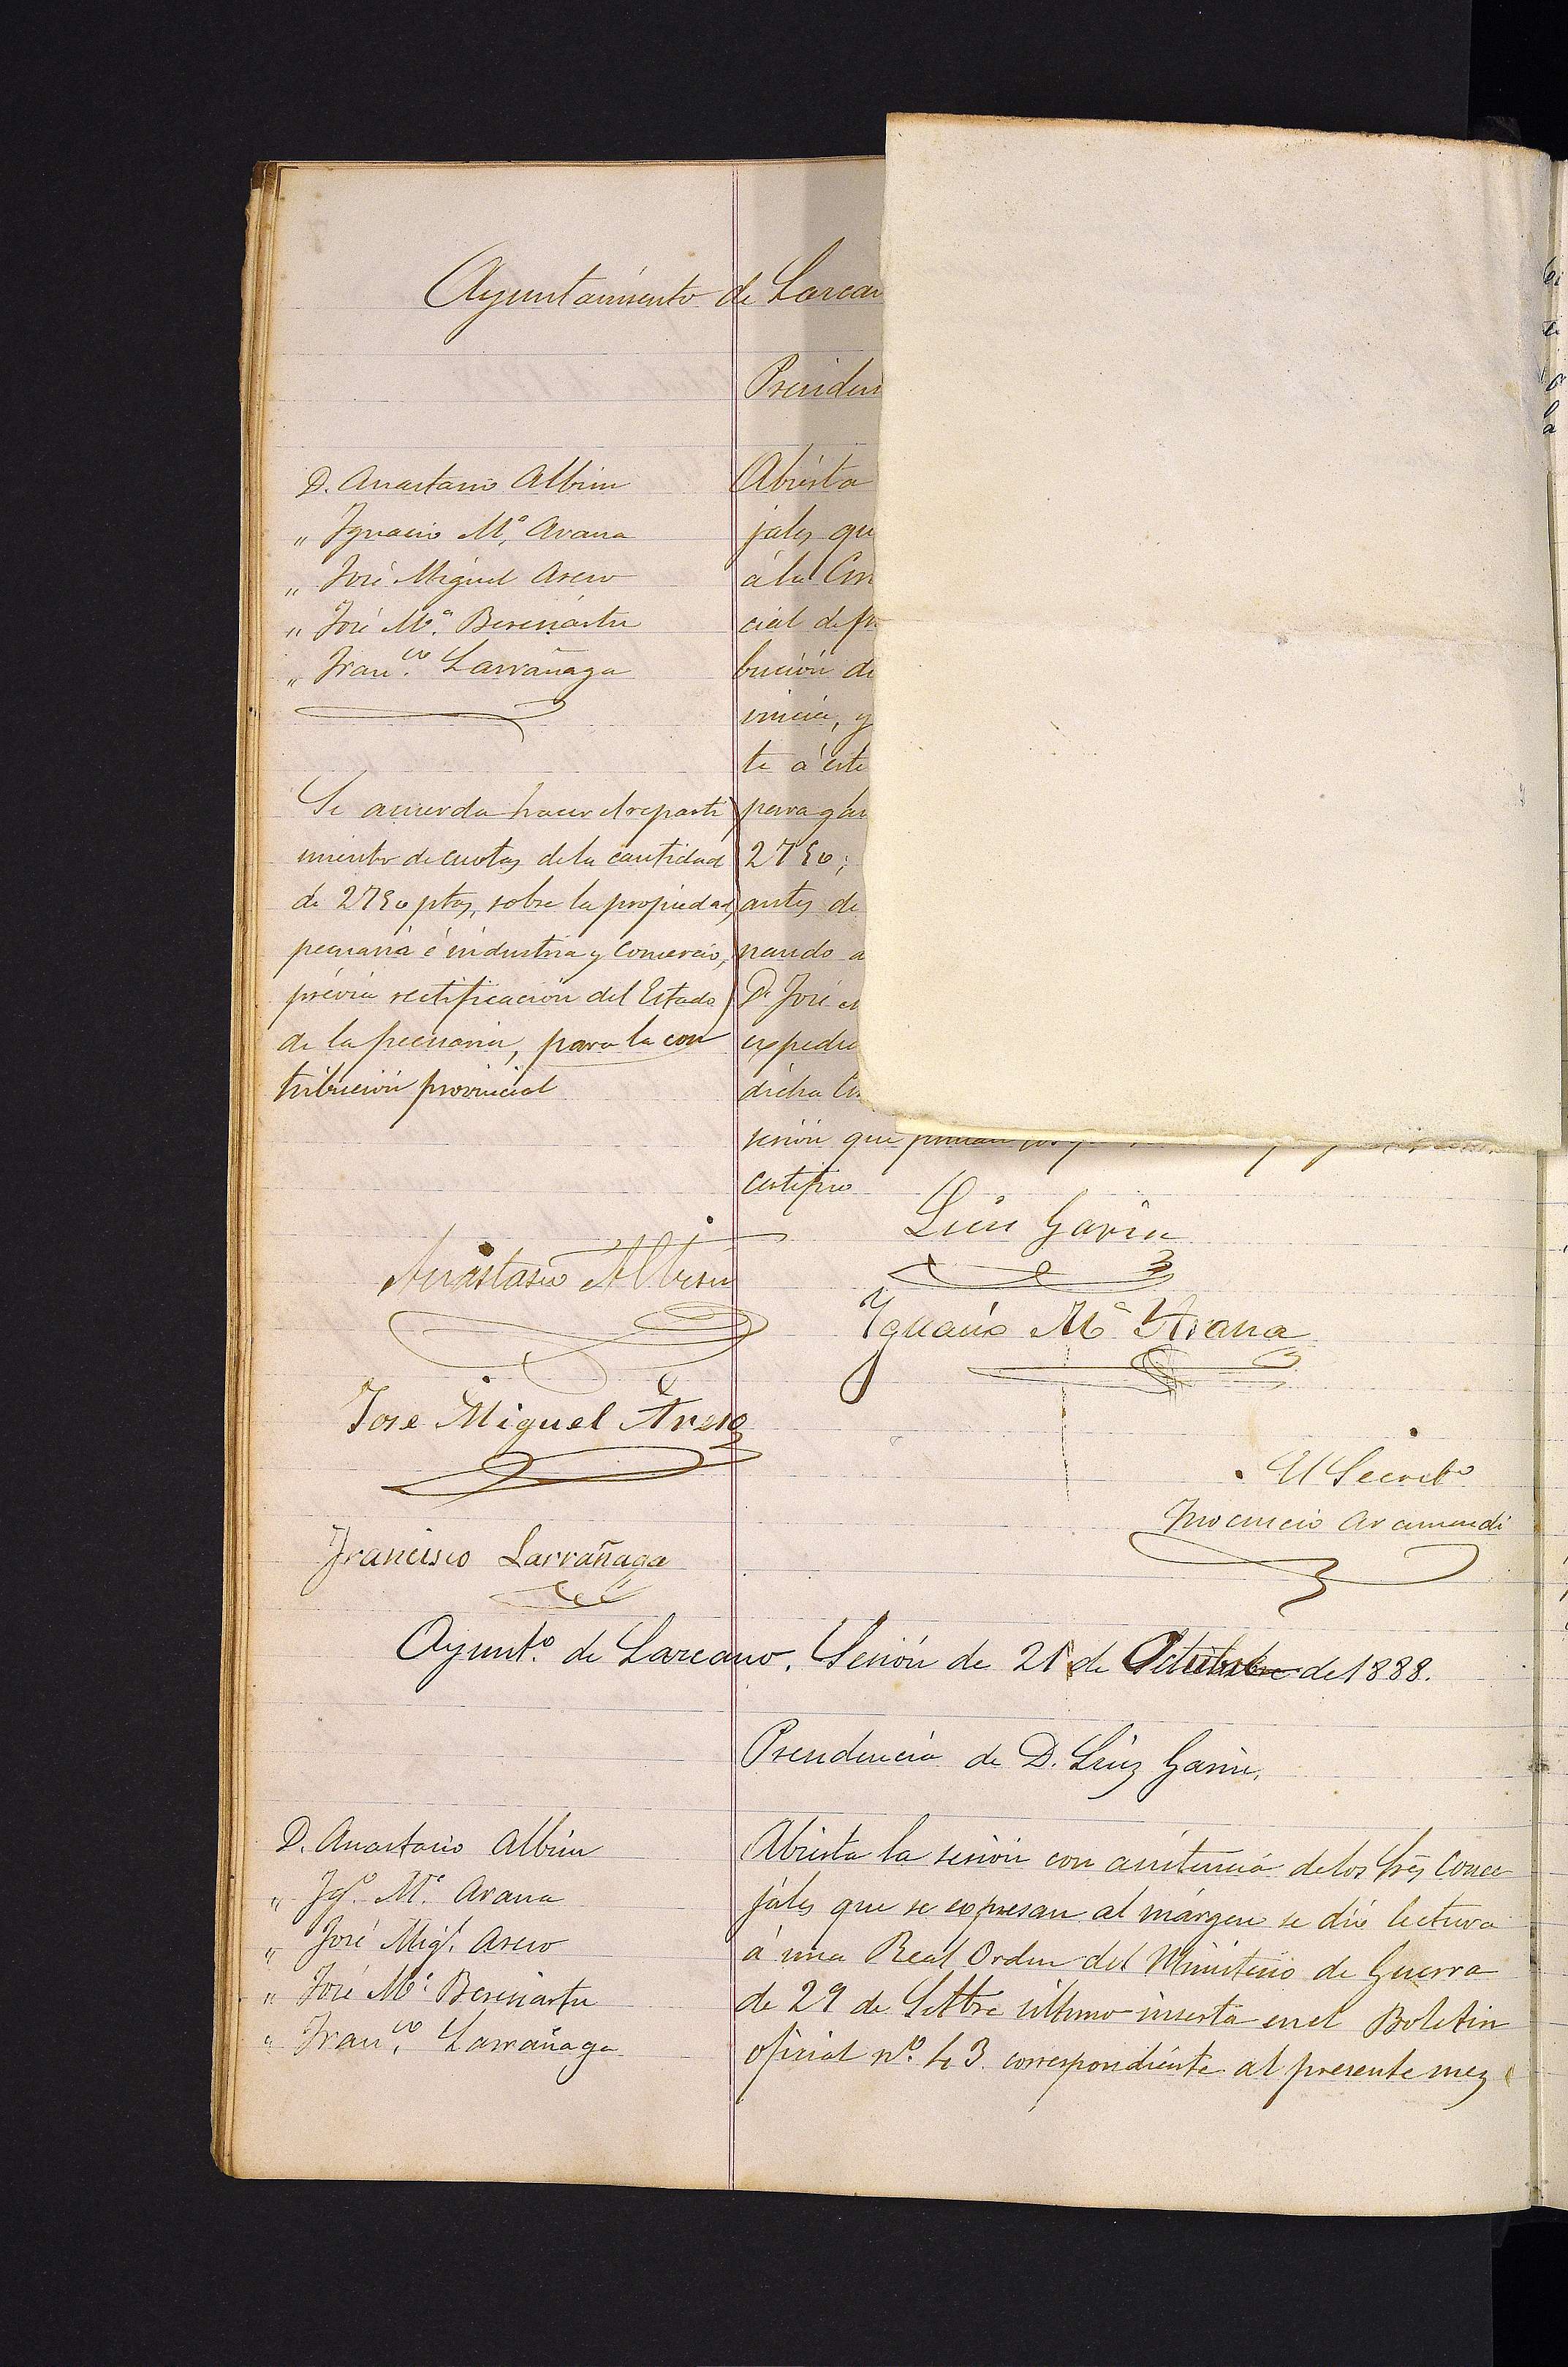 Ayuntamiento de Lazcan
Presiden
D. Anastasio Albisu
" Ignacio Mª. Arana
" José Miguel Areso
" José Mª. Berenartu
" Fran.co Larrañaga
Abierta
jales qu
á la Cir
cial de
bución de
vincia, y
te á este
para
2750;
antes de
nando a
D. José
expedie
dicha
sesión que
certifico
Se acuerda hacer el reparti
miento de cuotas de la cantidad
de 2750 ptas, sobre la propiedad,
pecuaria é industria y comercio,
prévia rectificación del Estado
de la pecuaria, para la con
tribución provincial
Luis Garin
Anastasio Albisu
Ignacio Mª Arana
Jose Miguel Areso
El Secreto
Inocencio Aramendi
Francisco Larrañaga
Ayunt.º de Lazcano. Sesión de 21 de Octubre de 1888.
Presidencia de D. Luiz Garin.
D. Anastasio Albisu
" Ig.º Mª. Arana
" José Migl. Areso
" José Mª. Berenartu
" Fran.co Larrañaga
Abierta la sesión con asistencia de los Srs conce
jales que se expresan al márgen se dió lectura
á una Real Orden del Ministerio de Guerra
de 29 de Setbre último inserta en el Boletin
oficial nº. 43 correspondiente al presente mez